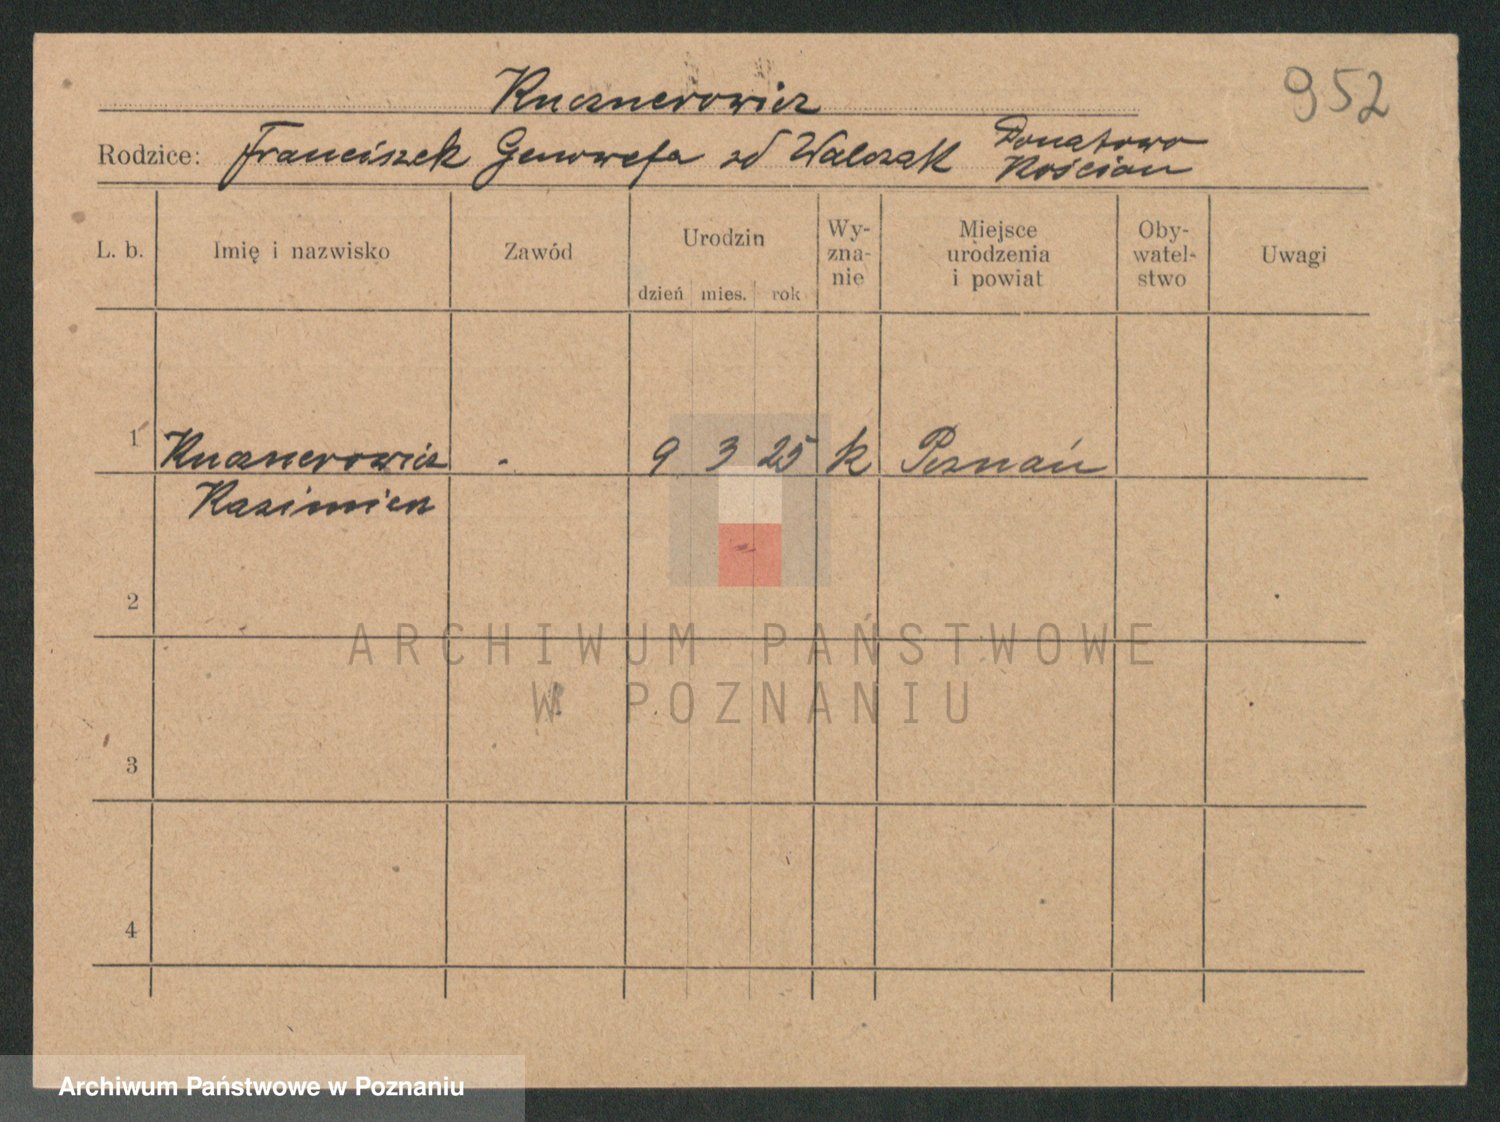 952
Kucznerowicz
Rodzice: Franciszek Genowefa zd Walczak Donatowo
Kościan
L. b. Imię i nazwisko Zawód Urodzin dzień mies. rok Wy-zna-nie Miejsce urodzenia i powiat Oby-watel-stwo Uwagi
1 Kucznerowicz - 9 3 25 k Poznań
Kazimierz
2
ARCHIWUM PAŃSTWOWE
W POZNANIU
3
4
Archiwum Państwowe w Poznaniu